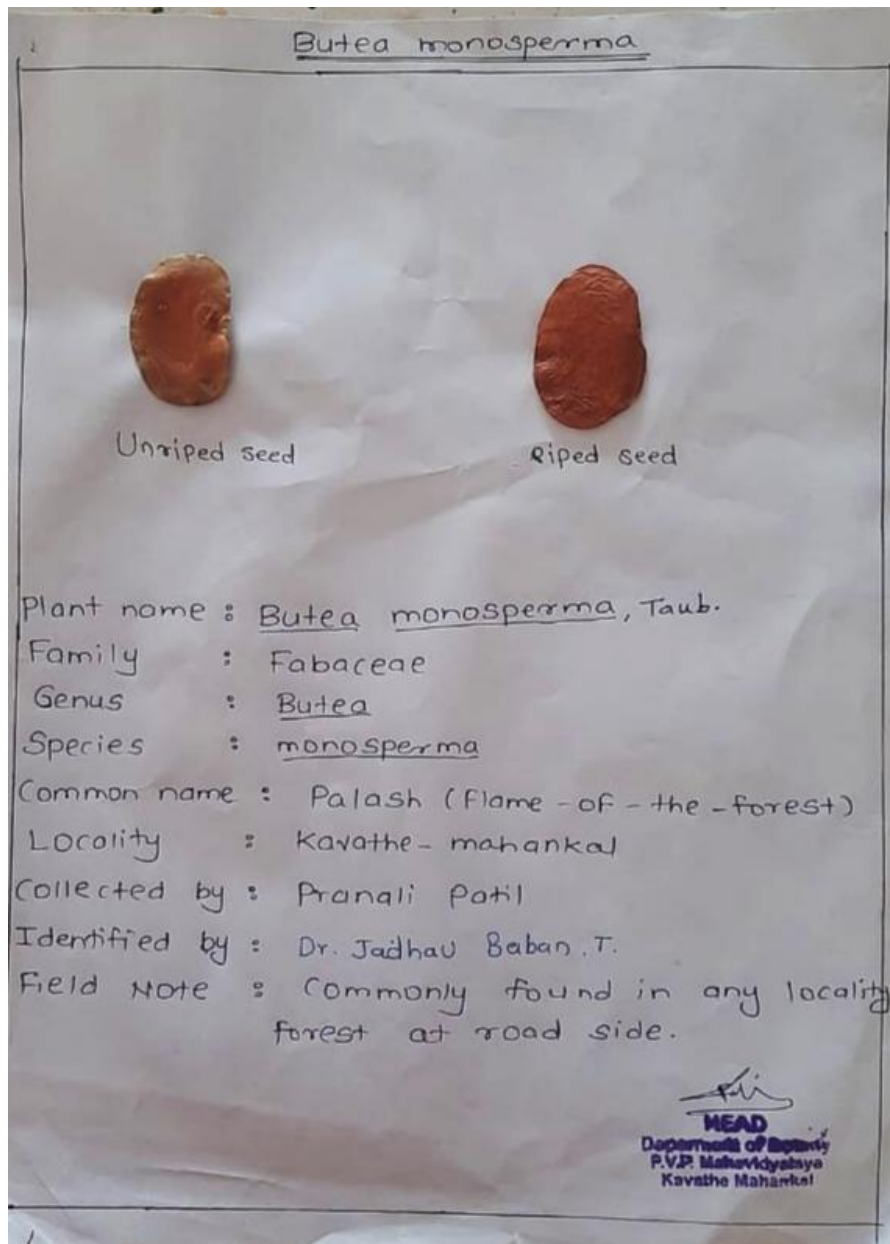 Butea monosperma
Unriped seed
Riped seed
Plant name : Butea monosperma, Taub.
Family : Fabaceae
Genus : Butea
Species : monosperma
Common name : Palash (Flame-of-the-forest)
Locality : Kavathe-mahankal
Collected by : Pranali Patil
Identified by : Dr. Jadhav Baban.T.
Field Note : Commonly found in any locality
forest at road side.
HEAD
Department of Botany
P.V.P. Mahavidyalaya
Kavathe Mahankal